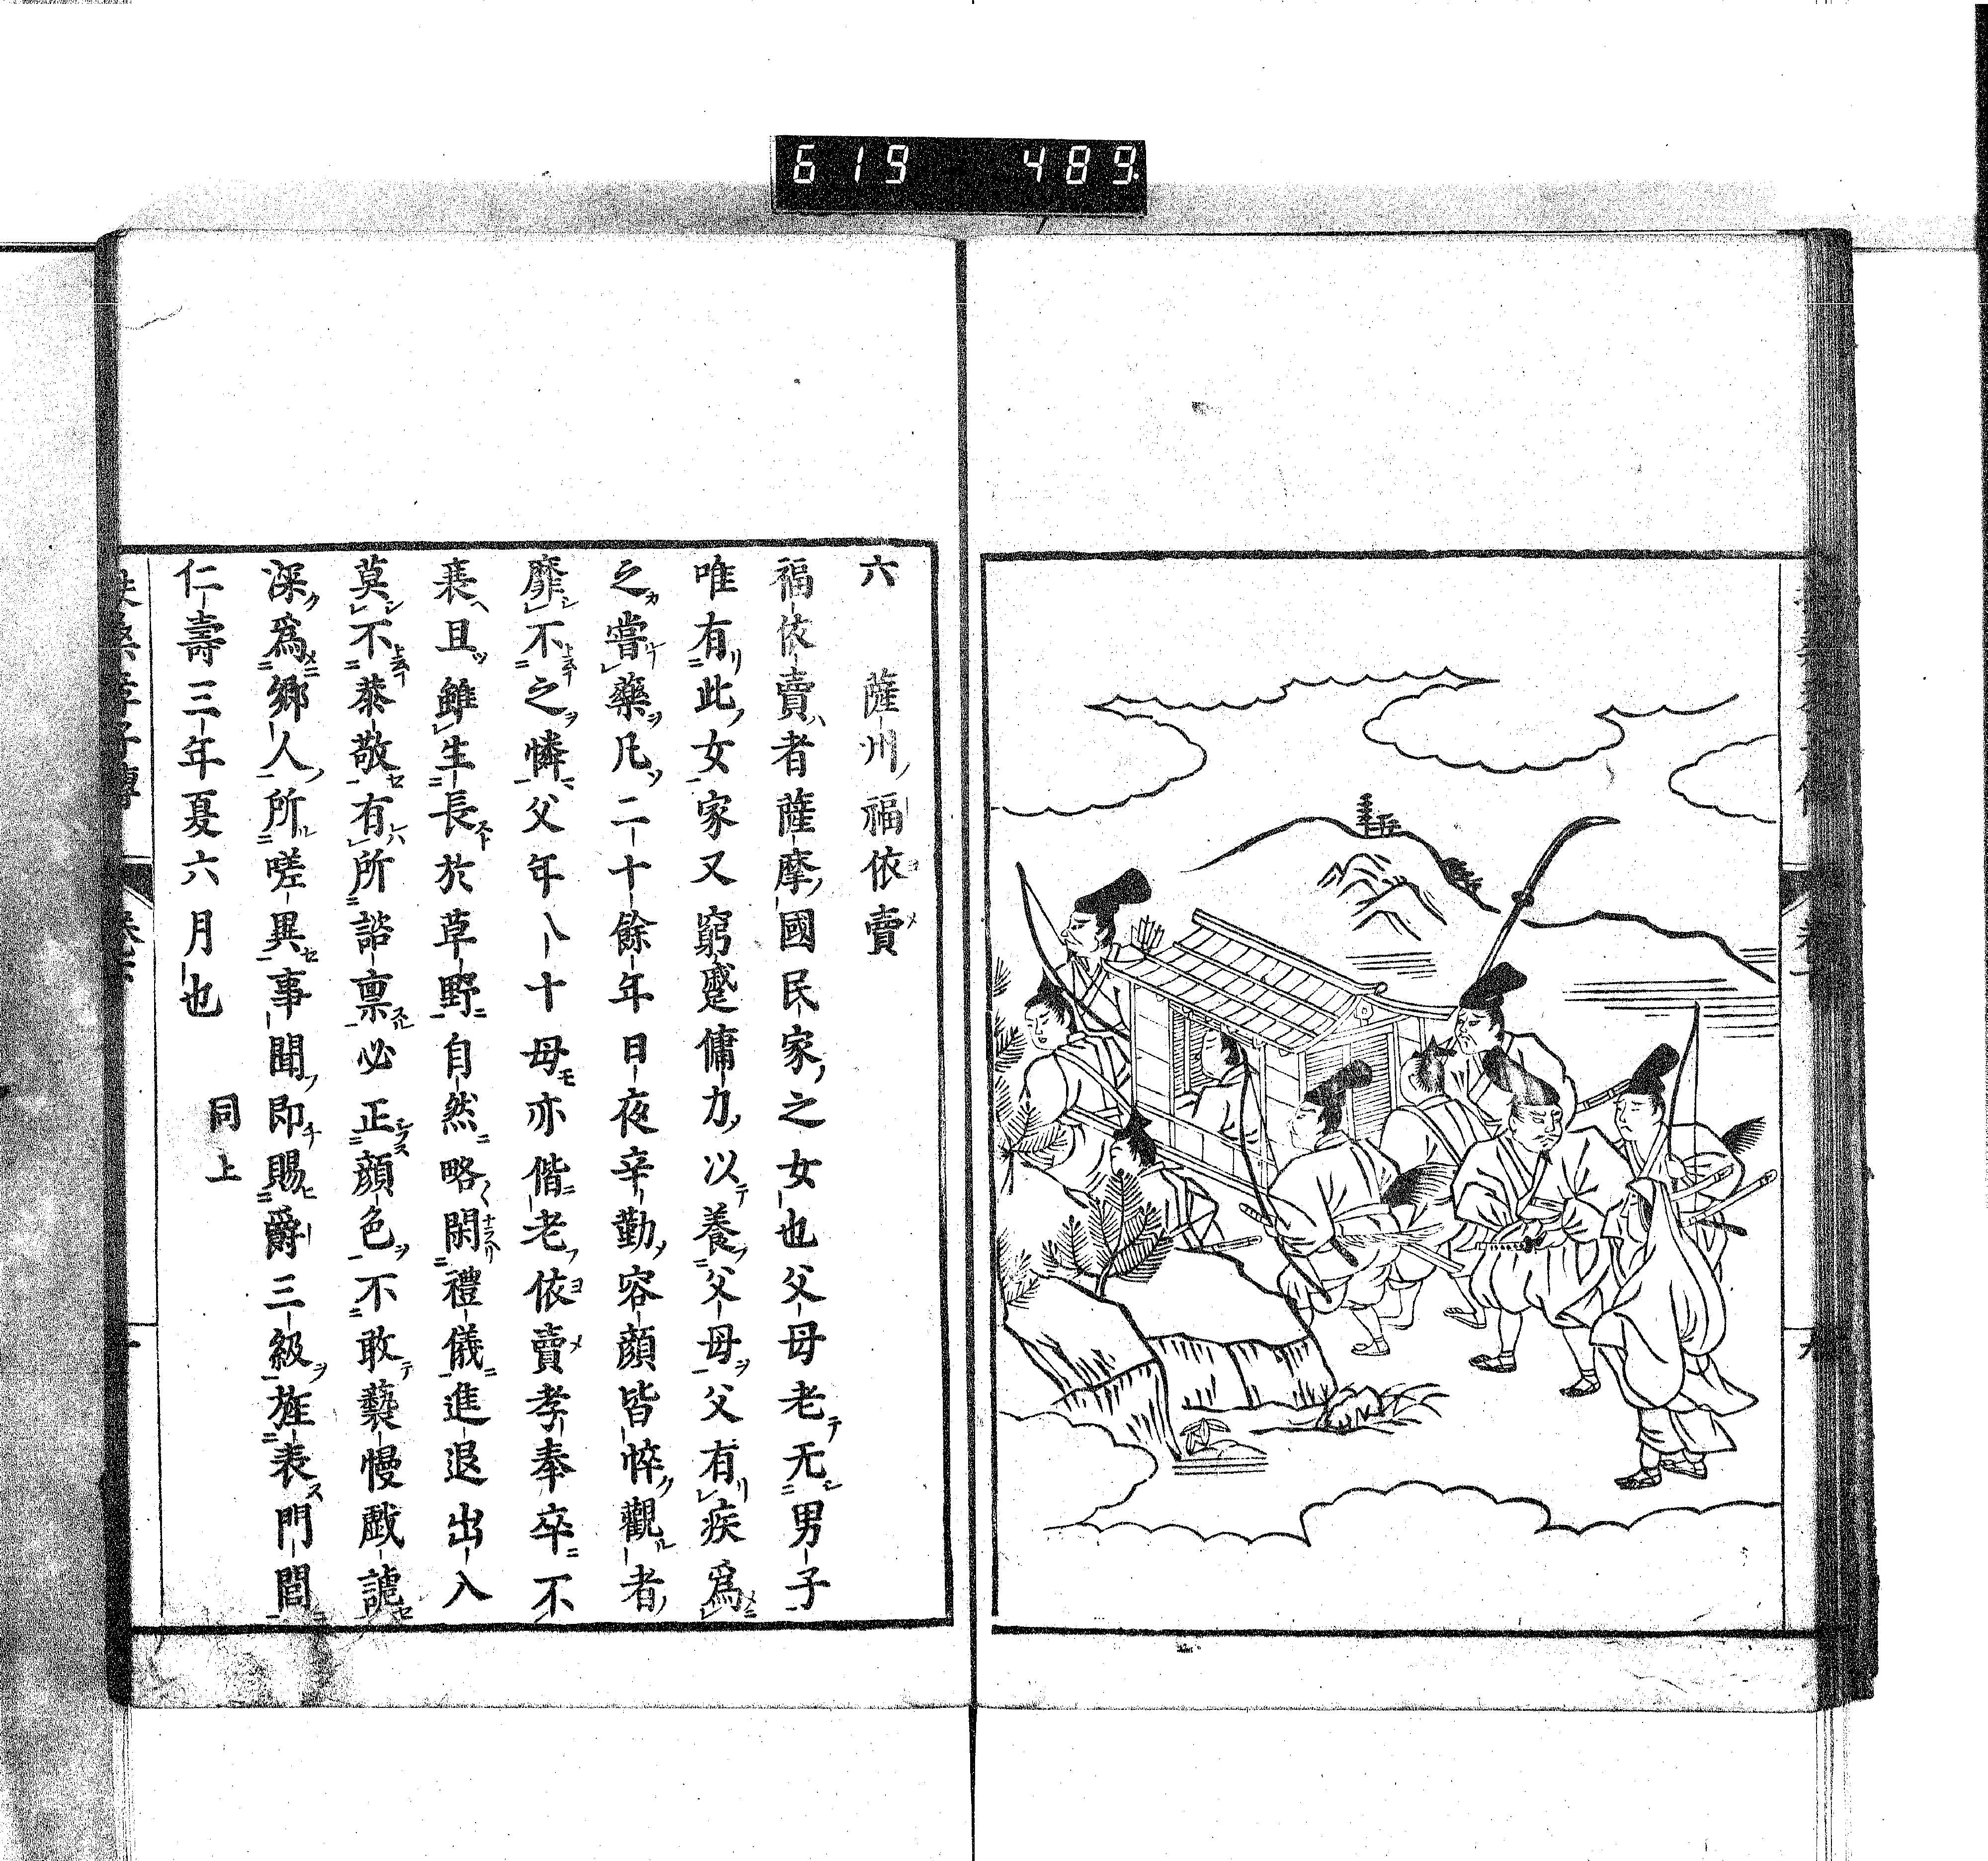 619 489
六 薩州福依賣
福依賣者薩摩國民家之女也父母老无男子
唯有此女家又窮蹙傭力以養父母父有疾爲
之嘗藥凡二十餘年日夜辛勤容顔皆悴觀者
靡不之憐父年八十母亦偕老依賣孝奉卒不
衰且雖生長於草野自然略閑禮儀進退出入
莫不恭敬有所諮禀必正顔色不敢藝慢戯謔
深爲鄉人所嗟異事聞即賜爵三級旌表門閭
仁壽三年夏六月也 同上